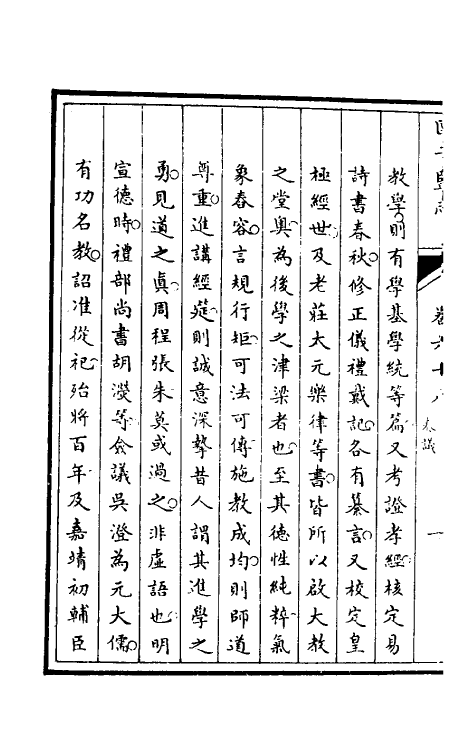 教學則有學基學統等篇又考證孝經核定易
詩書春秋修正儀禮戴記各有纂言又校定皇
極經世及老莊太元樂律等書皆所以啟大教
之堂奧為後學之津梁者也至其德性純粹氣
象春容言規行矩可法可傳施教成均則師道
尊重進講經筵則誠意深摯昔人謂其進學之
勇見道之真周程張朱莫或過之非虛語也明
宣德時禮部尚書胡濙等僉議吳澄為元大儒
有功名教詔准從祀殆將百年及嘉靖初輔臣